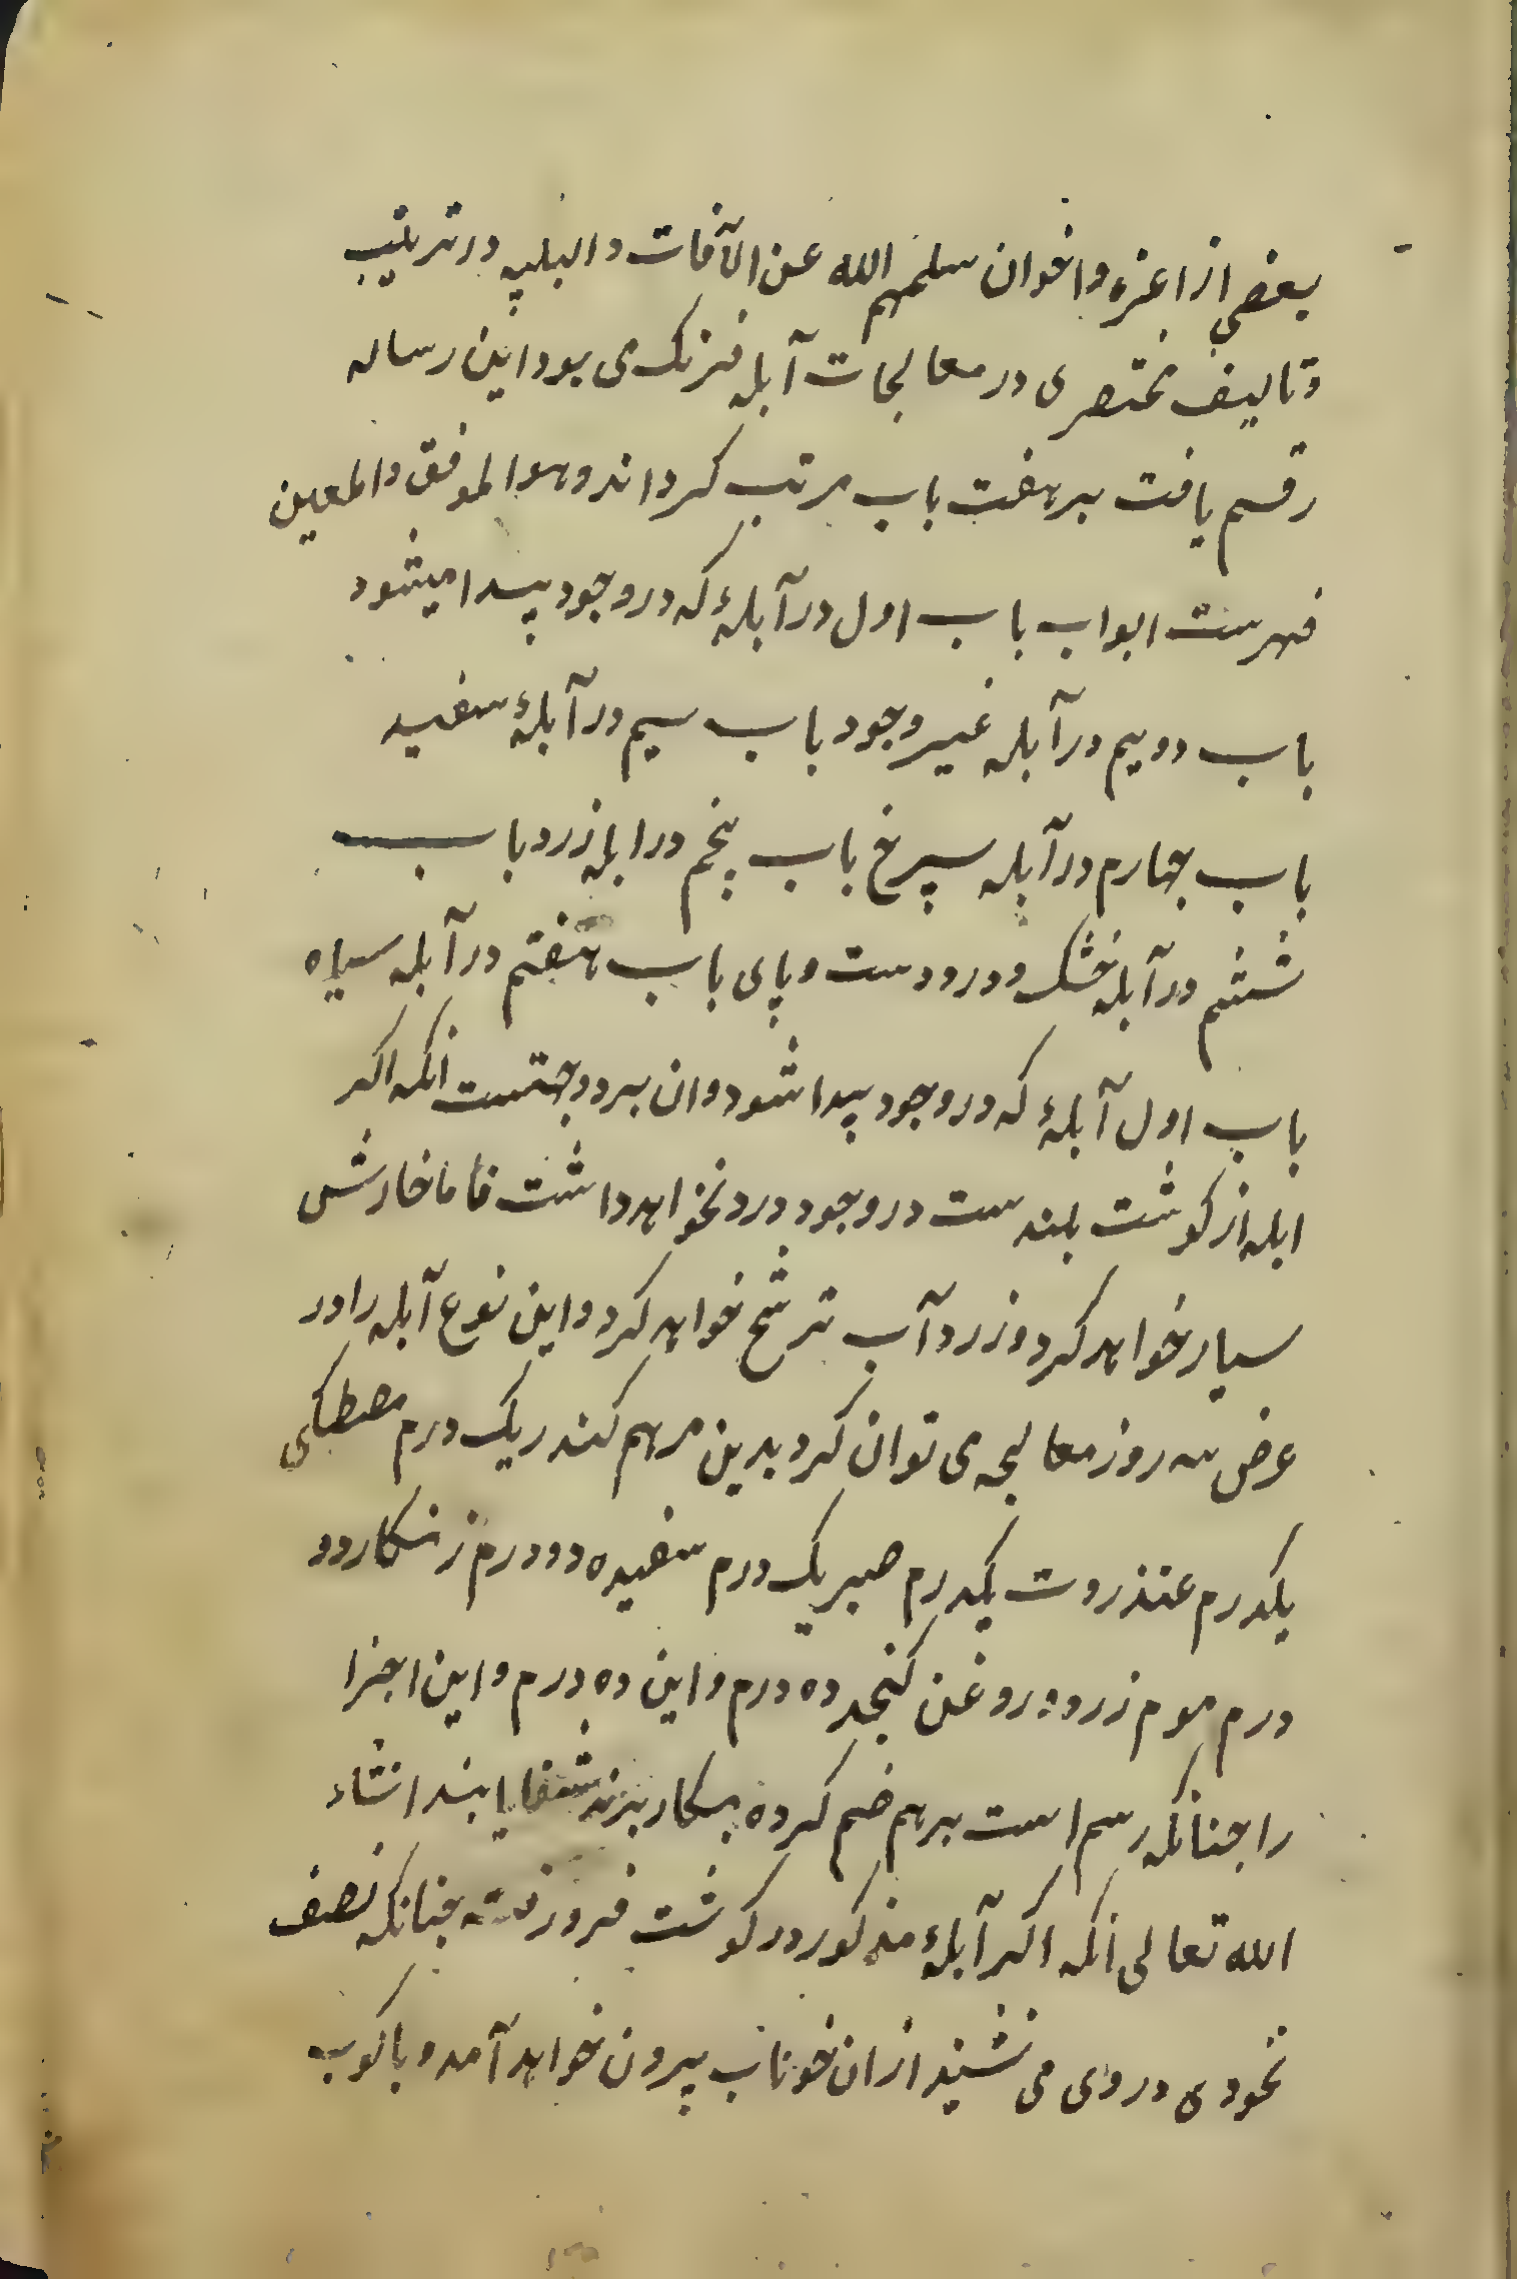 بعضی از اعزه و اخوان سلمهم الله عن الآفات و البلیه در ترتیب
و تالیف مختصری در معالجات آبله فرنک می بود این رساله
رقم یافت بر هفت باب مرتب کرداند و هوالموفق والمعین
فهرست ابواب باب اول در آبلهٔ که در وجود پیدا میشود
باب دویم در آبله غیر وجود باب سیم در آبلهٔ سفید
باب چهارم در آبله سرخ باب پنجم در ابله زرد باب
ششم در آبله خشک و درد دست و پای باب هفتم در آبله سیاه
باب اول آبلهٔ که در وجود پیدا شود و ان بر دو جهتست انکه اکر
ابله از کوشت بلندست در وجود درد نخواهد داشت فاما خارش
بسیار خواهد کرد و زرد آب ترشح خواهد کرد و این نوع آبله را در
عرض سه روز معالجه می توان کرد بدین مرهم کندر یک درم مصطکی
یکدرم عنذروت یکدرم صبر یک درم سفیده دو درم زنکار دو
درم موم زرد و روغن کنجد ده درم و این ده درم و این اجزا
را چنانکه رسم است برهم ضم کرده بکار برند شفا یابند انشاء
الله تعالی انکه اکر آبلهٔ مذکور در کوشت فرو رفته چنانکه نصف
نخودی در وی می نشیند از ان خوناب بیرون خواهد آمد و با کوب